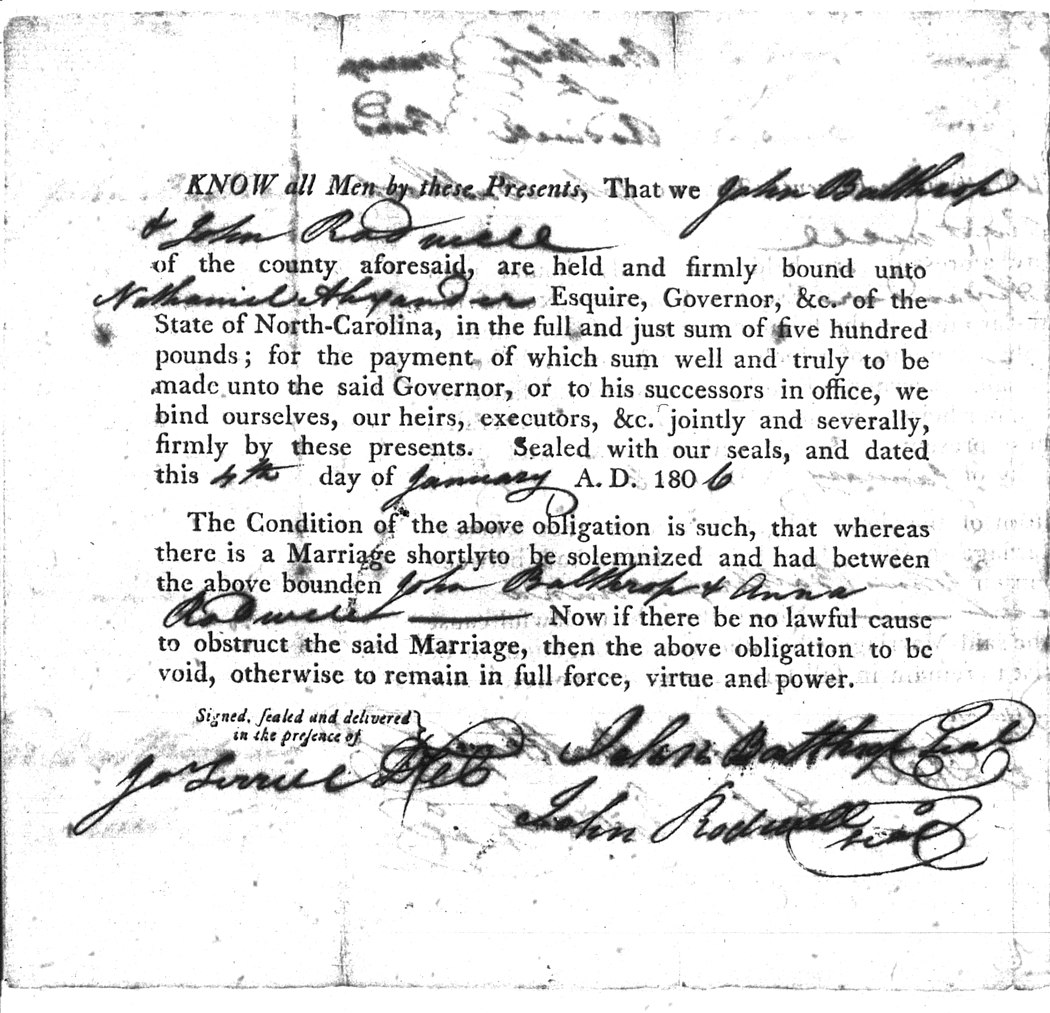 KNOW all Men by these Presents, That we John Balthrop
& John Rodwell
of the county aforesaid, are held and firmly bound unto
Nathaniel Alexander Esquire, Governor, &c. of the
State of North-Carolina, in the full and just sum of five hundred
pounds; for the payment of which sum well and truly to be
made unto the said Governor, or to his successors in office, we
bind ourselves, our heirs, executors, &c. jointly and severally,
firmly by these presents. Sealed with our seals, and dated
this 4th day of January A. D. 1806
The Condition of the above obligation is such, that whereas
there is a Marriage shortlyto be solemnized and had between
the above bounden John Balthrop & Anna
Rodwell Now if there be no lawful cause
to obstruct the said Marriage, then the above obligation to be
void, otherwise to remain in full force, virtue and power.
Signed, sealed and delivered
in the presence of
John Balthrop Seal
Jo Terrell
John Rodwell Seal